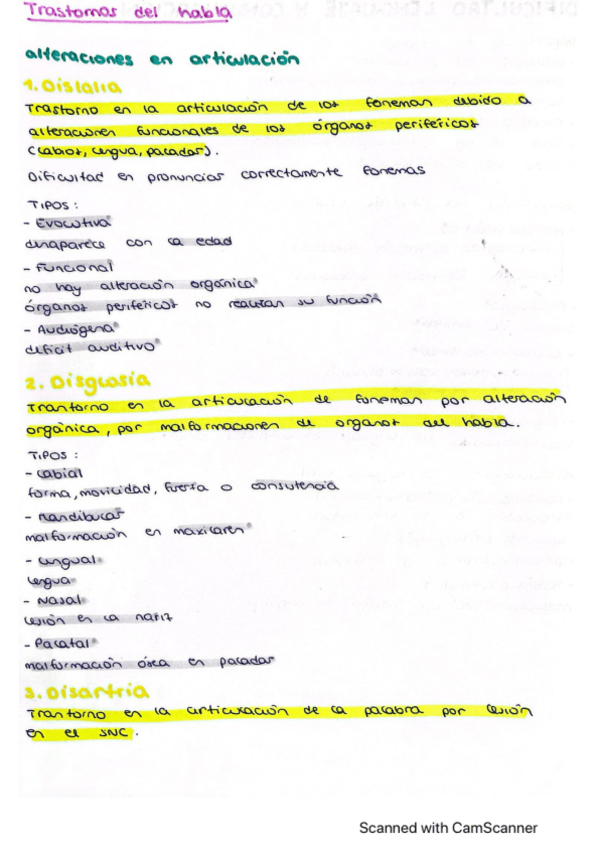 Trastornos del habla
alteraciones en articulación
1. Dislalia
Trastorno en la articulación de los fonemas debido a
alteraciones funcionales de los órganos periféricos
(labios, lengua, paladar).
Dificultad en pronunciar correctamente fonemas
TIPOS:
- Evolutiva
desaparece con la edad
- Funcional
no hay alteración orgánica
órganos periféricos no realizan su función
- Audiógena
déficit auditivo
2. Disglosia
Trastorno en la articulación de fonemas por alteración
orgánica, por malformaciones de organos del habla.
TIPOS:
- Labial
forma, movilidad, fuerza o consistencia
- Mandibular
malformación en maxilares
- Lingual
lengua
- Nasal
lesión en la nariz
- Palatal
malformación ósea en paladar
3. Disartria
Trastorno en la articulación de la palabra por lesión
en el SNC.
Scanned with CamScanner